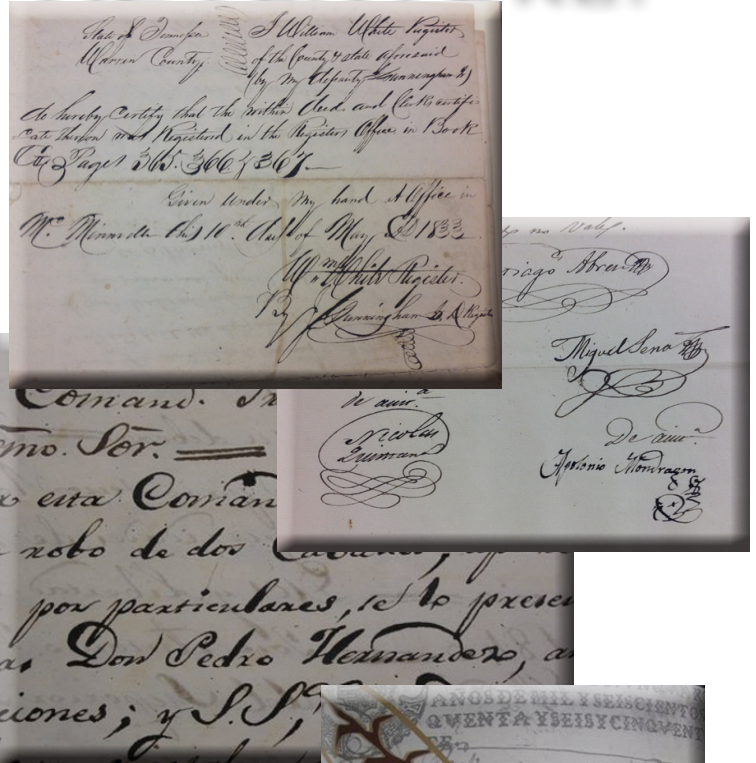 State of Tennessee
Warren County.
I William White Register
of the County & state aforesaid
(by my deputy Cunningham)
do hereby Certify that the within deed and Clerks certifi-
cate thereon was Registered in the Registers Office in Book
Pages 365. 366 & 367.
Given under my hand at Office in
Mc. Minnville this 10th day of May AD 1833
Wm White Register.
By J Cunningham D Register
riago Abreu
Miguel Sena
De asia.
Nicolas
Quintana
De asia.
Antonio Mondragon
Comand.
mo. Sor.
esta Coman
robo de dos
por particulares, se lo presen
Don Pedro Hernandez, a
ciones; y S. S,
AÑOS DE MIL Y SEISCIENTOS
QVENTA Y SEIS Y CINQVENT